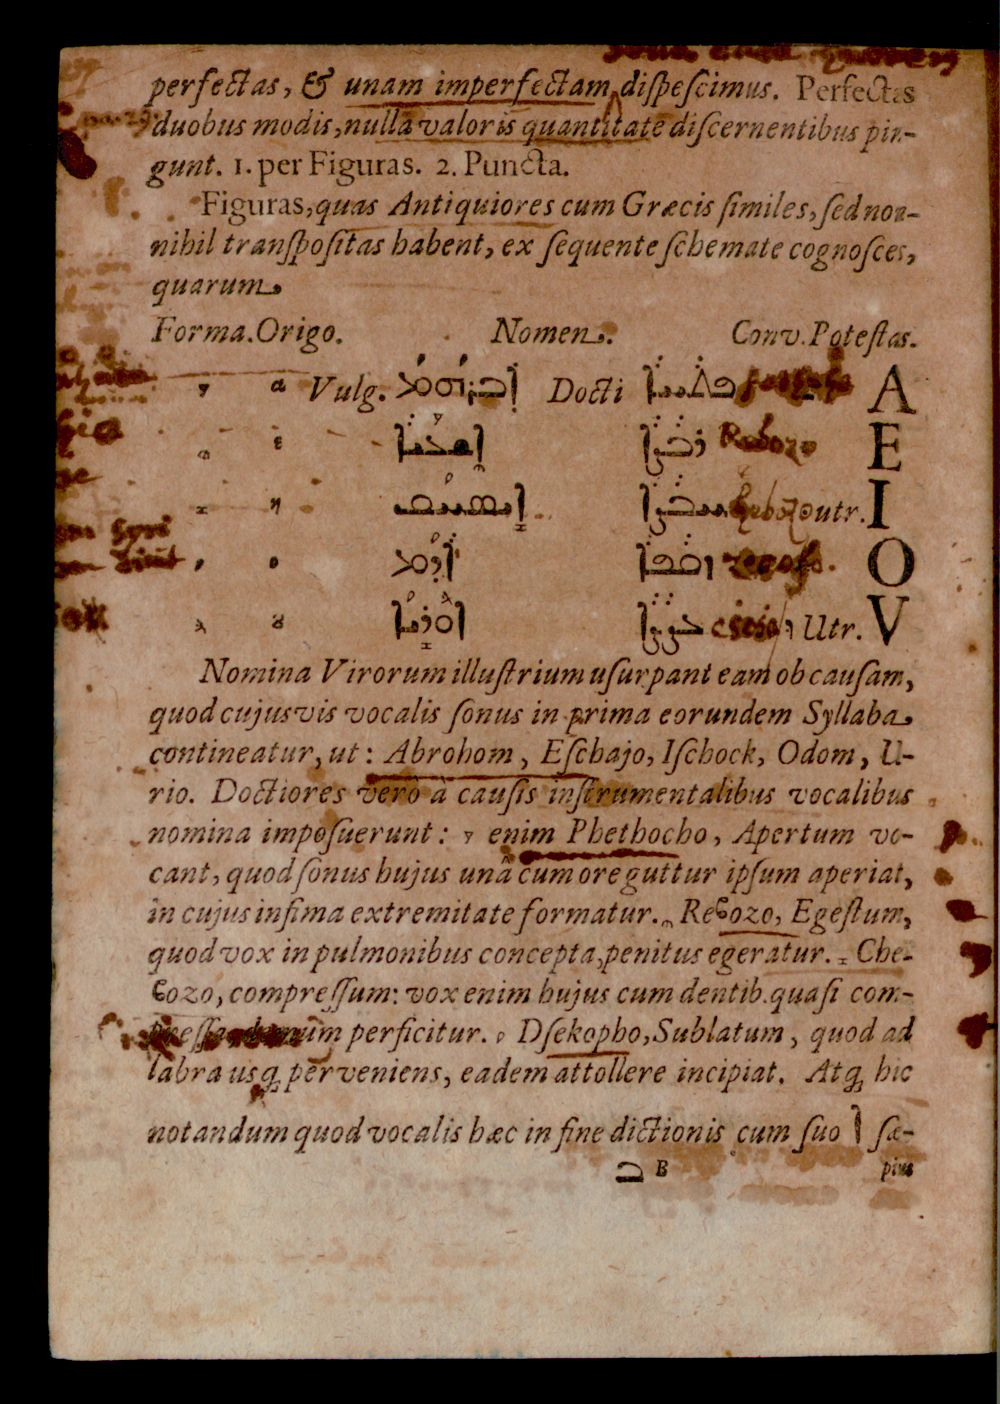 perfectas, & unam imperfectam dispescimus. Perfectas
duobus modis, nullâ valoris quantitate discernentibus pin-
gunt. 1. per Figuras. 2. Puncta.
Figuras, quas Antiquiores cum Græcis similes, sed non-
nihil transpositas habent, ex sequente schemate cognosces,
quarum
Forma. Origo. Nomen. Conv. Potestas.
α Vulg. ܐܒܪܘܗܘܡ Docti ܦܬܚܐ A
ε ܐܫܥܝܐ ܪܒܨܐ Rebozo E
η ܐܝܣܚܩ ܚܒܨܐ utr. I
ο ܐܕܡ ܙܩܦܐ O
ȣ ܐܘܪܝܐ ܥܨܨܐ Utr. V
Nomina Virorum illustrium usurpant eam ob causam,
quod cujusvis vocalis sonus in prima eorundem Syllaba
contineatur, ut: Abrohom, Eschajo, Ischock, Odom, U-
rio. Doctiores verò à causis instrumentalibus vocalibus
nomina imposuerunt: enim Phethocho, Apertum vo-
cant, quod sonus hujus unâ cum ore guttur ipsum aperiat,
in cujus infima extremitate formatur. Reბozo, Egestum,
quod vox in pulmonibus concepta, penitus egeratur. Che-
ბozo, compressum: vox enim hujus cum dentib. quasi com-
perficitur. Dsekopho, Sublatum, quod ad
labra usq; perveniens, eadem attollere incipiat. Atq; hic
notandum quod vocalis hæc in fine dictionis cum suo ܐ sæ-
ܒ B pius